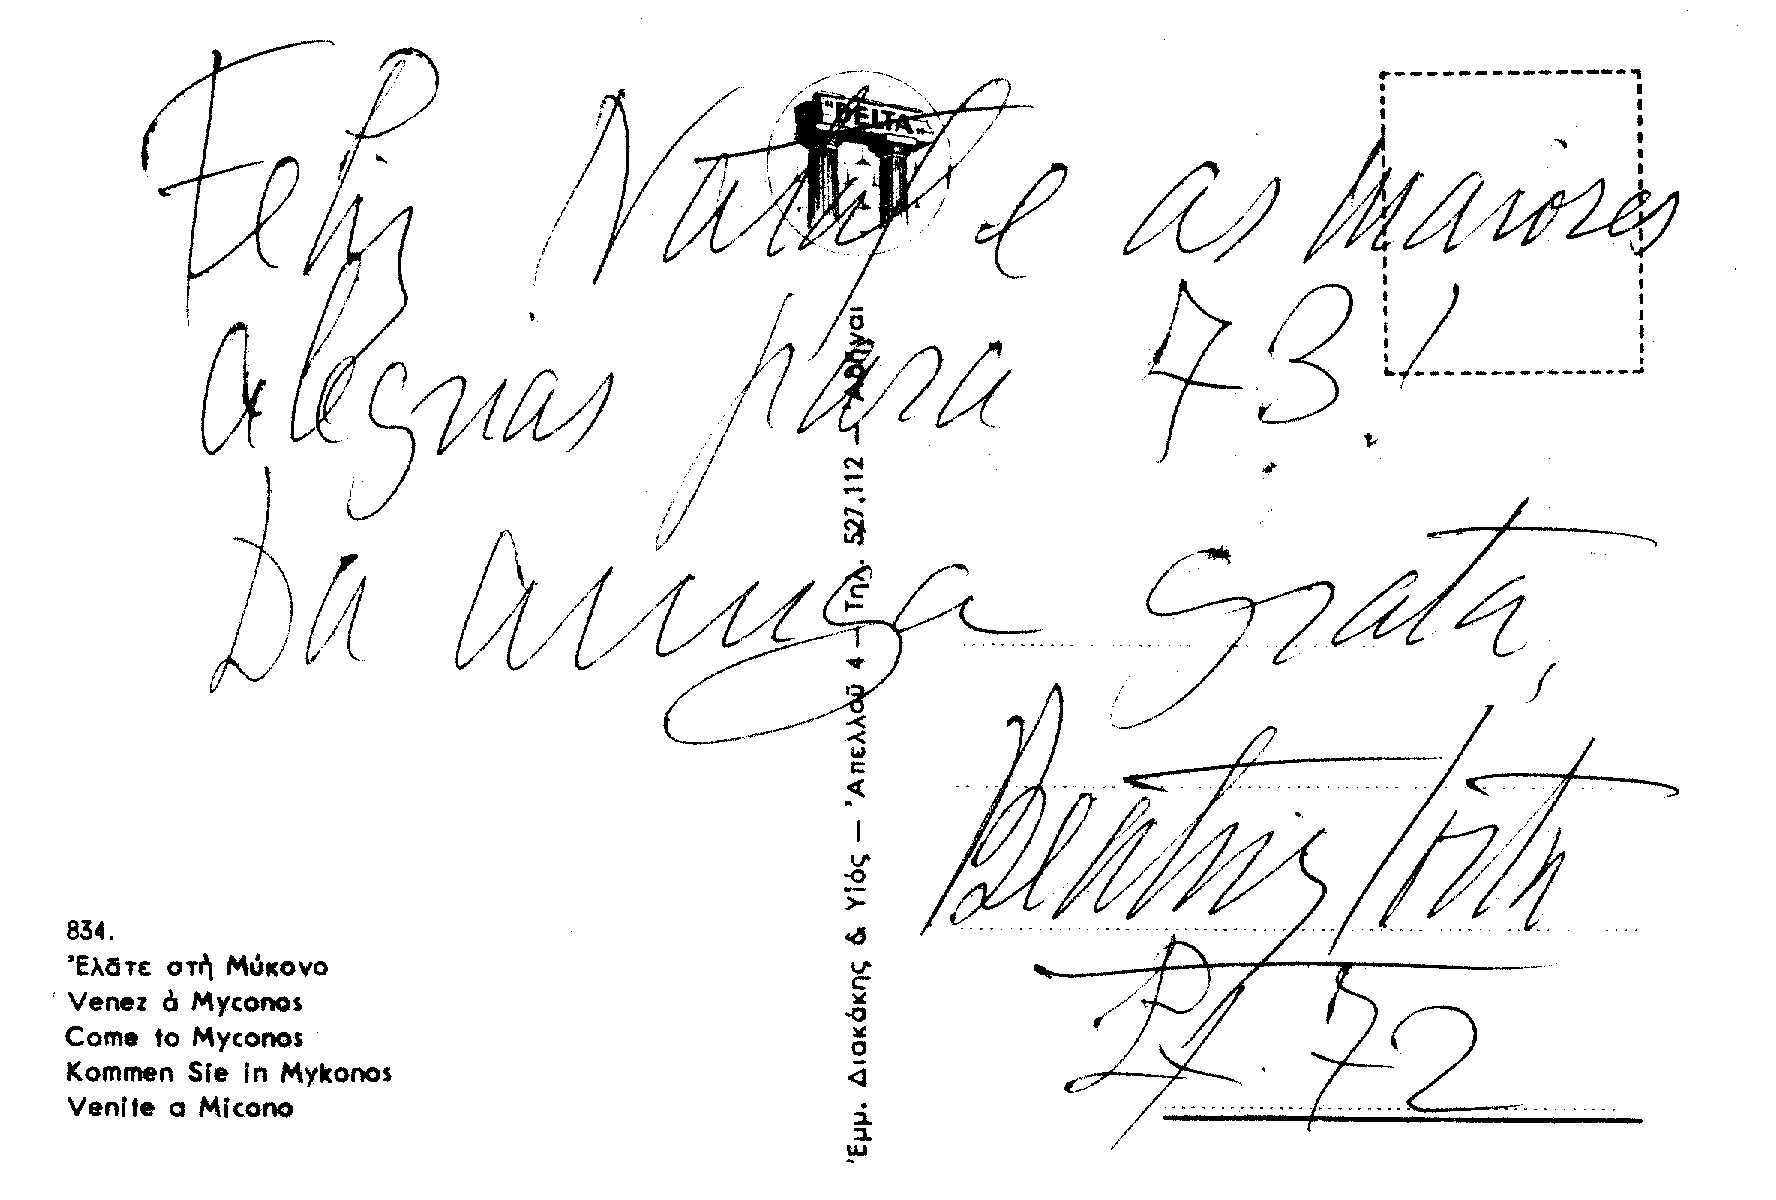 Feliz Natal e as maiores
alegrias para 73!
Da amiga grata,
Beatriz
72
"DELTA"
Ἐμμ. Διακάκης & Υἱός — Ἀπελλοῦ 4 — Τηλ. 527.112 — Ἀθῆναι
834.
Ἐλᾶτε στὴ Μύκονο
Venez à Myconos
Come to Myconos
Kommen Sie in Mykonos
Venite a Micono